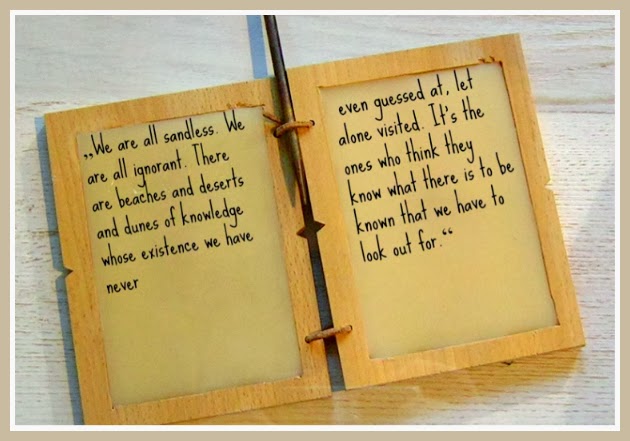 „We are all sandless. We
are all ignorant. There
are beaches and deserts
and dunes of knowledge
whose existence we have
never
even guessed at, let
alone visited. It's the
ones who think they
know what there is to be
known that we have to
look out for.“